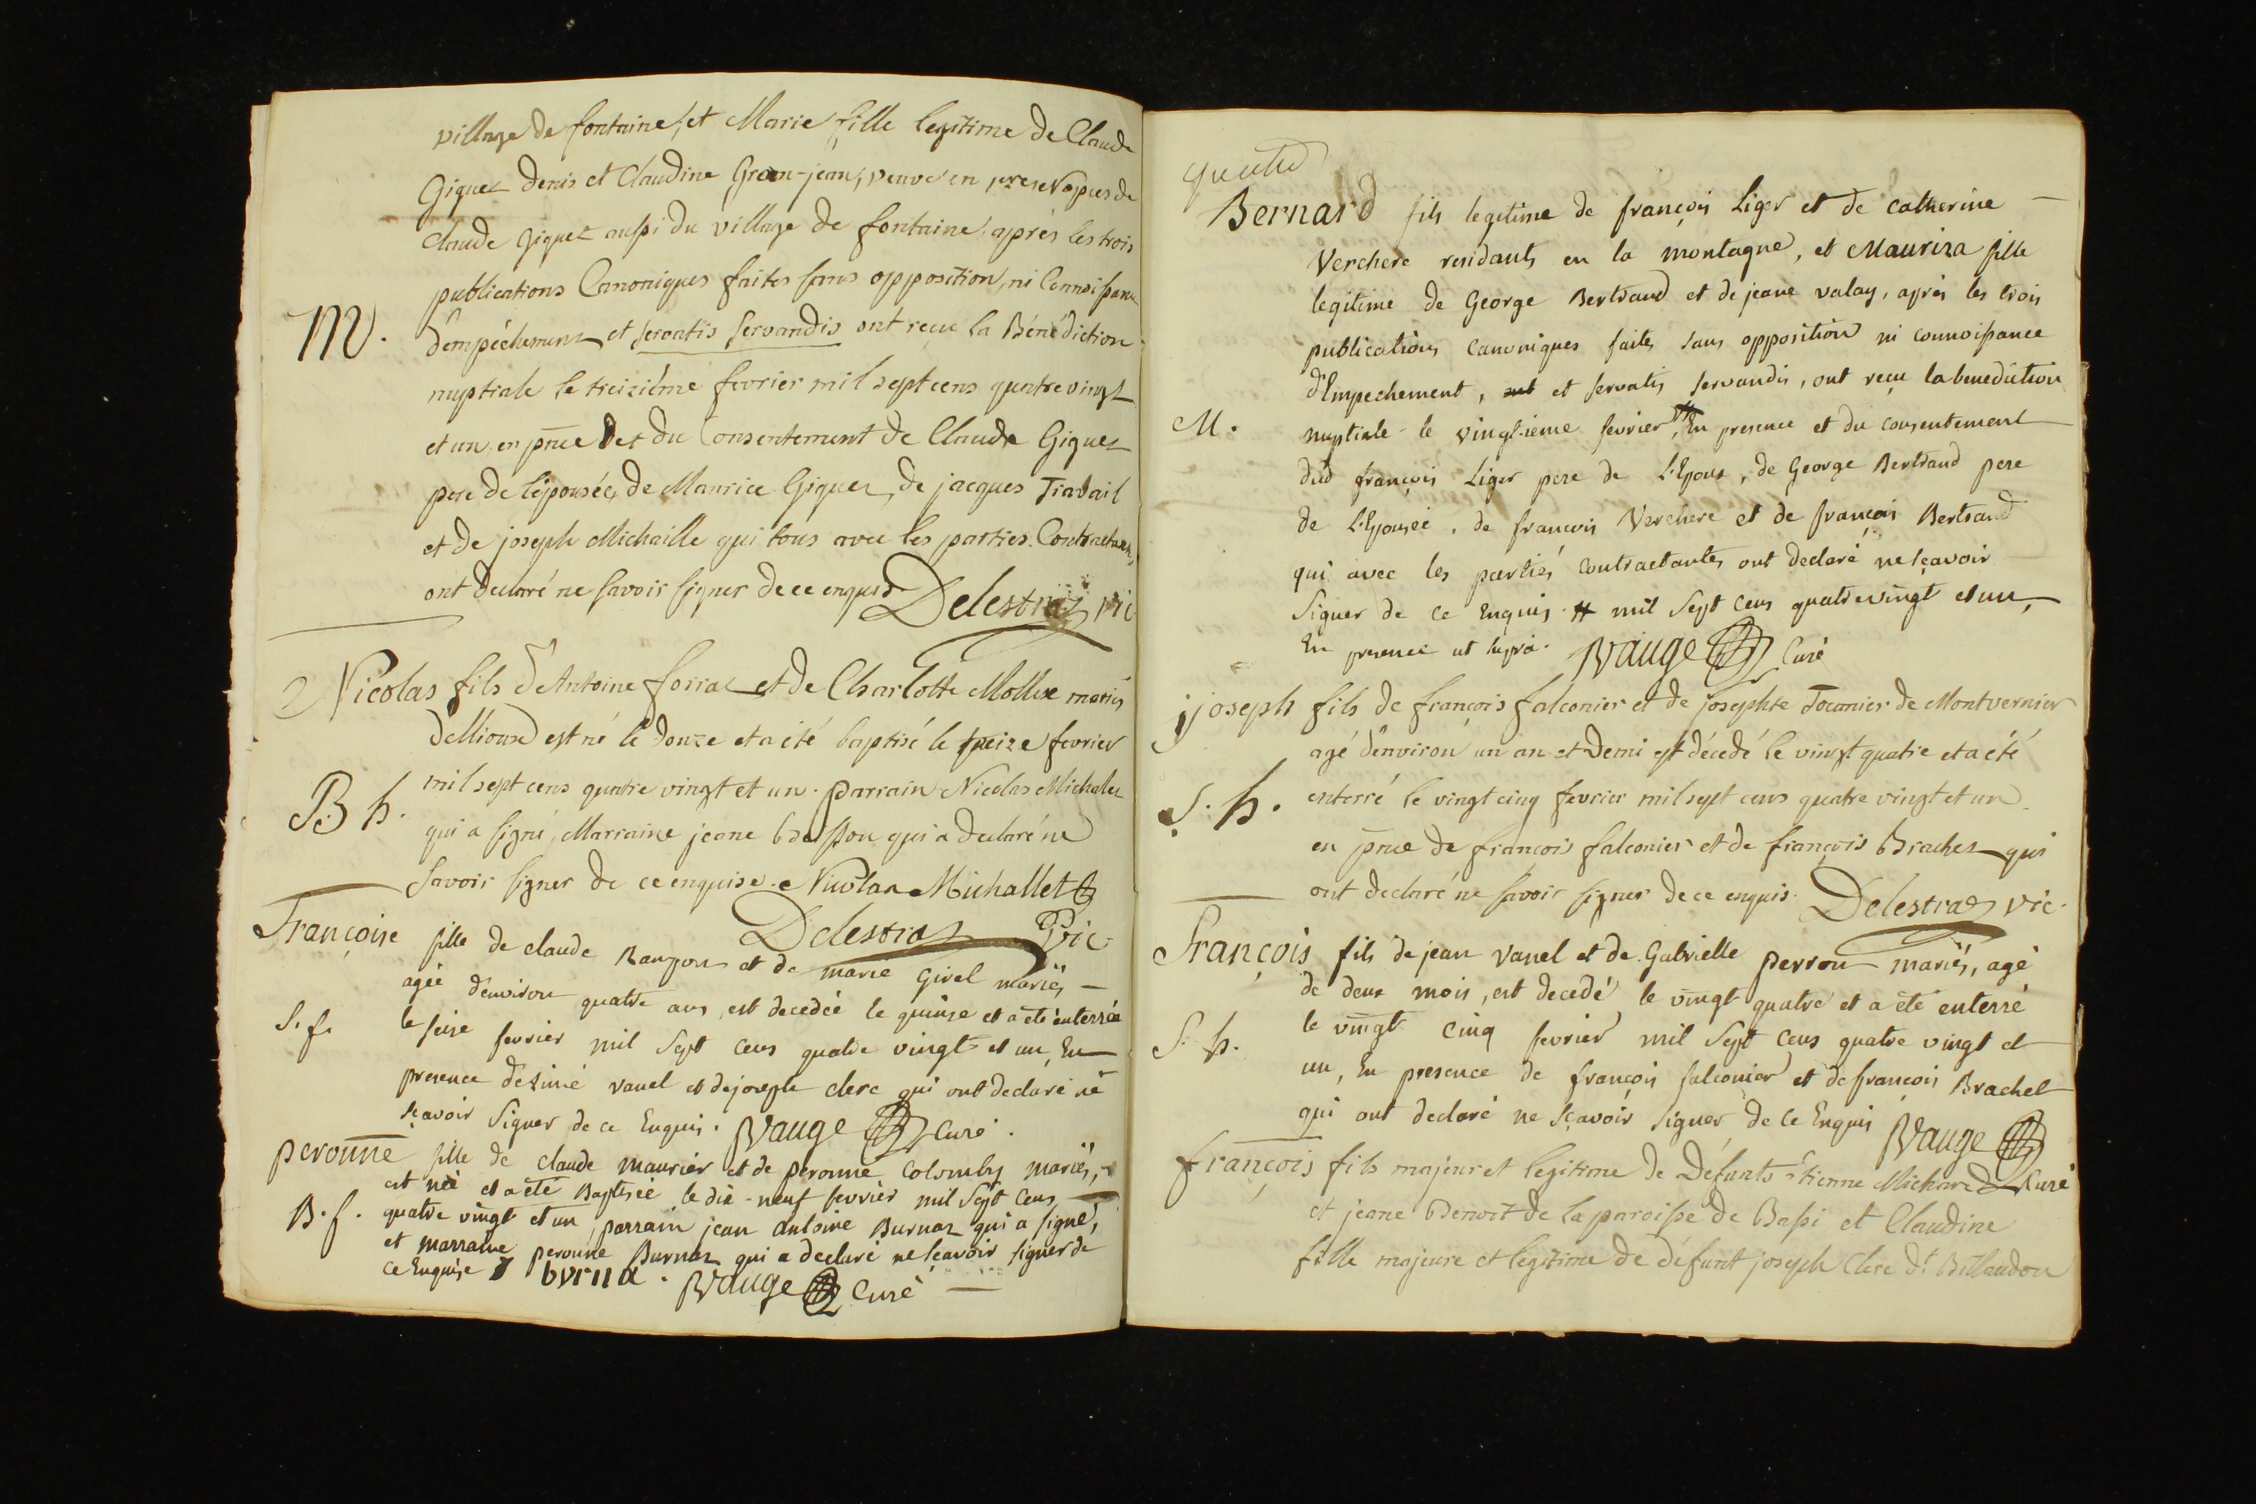 village de fontaine, et Marie fille legitime de Claude
Giguet Denis et Claudine Gran-jean, veuve en
Claude Giguet aussi du village de fontaine. aprés les trois
publications Canoniques faites sans opposition, ni Connoissance
M. d'empéchement et servatis servandis ont reçu la Bénédiction
nuptiale le treiziéme fevrier mil sept cens quatre vingt
et un en pñce et du Consentement de Claude Giguet
pere de l'épousée, de Maurice Giguet, de jacques Travail
et de joseph Michaille qui tous avec les parties Contractantes
ont declaré ne savoir signer de ce enquis Delestraz vic
Nicolas fils d'Antoine forraz et de Charlotte Mollie mariés
est né le Douze et a été baptisé le treize fevrier
B. h. mil sept cens quatre vingt et un. parrain Nicolas Michallet
qui a signé, Marraine jeane Besson qui a declaré ne
savoir signer de ce enquise. Nicolas Michallet
Delestraz Vic
Françoise fille de claude Ranzon et de marie Girel mariés,
agée d'environ quatre ans, est decedée le quinze et a été enterrée
S. f. le seise fevrier mil sept cens quatre vingt et un, En
presence de vanel et de joseph clerc qui ont declaré ne
sçavoir signer de ce Enquis. Vauge Curé.
peronne fille de claude maurier et de peronne Colomby mariés,
est née et a été Baptisée le dix-neuf fevrier mil sept cens
B. f. quatre vingt et un, parrain jean antoine Burnaz qui a signé,
et marraine peronne Burnaz qui a declaré ne sçavoir signer de
ce Enquise J burna. Vauge Curé
quatre
Bernard fils legitime de françois Liger et de catherine
Verchere residants en la montagne, et Mauriza fille
legitime de George Bertrand et de jeane valay, aprés les trois
publications canoniques faites sans opposition ni connoissance
d'Empechement, et servatis servandis, ont reçu la benediction
M. nuptiale le vingtieme fevrier, # En presence et du consentement
dud françois Liger pere de L'Epoux, de George Bertrand pere
de L'Epousée, de françois Verchere et de françois Bertrand
qui avec les partiés contractantes ont declaré ne sçavoir
signer de ce Enquis # mil sept cens quatre vingt et un,
En presence ut supra. Vauge Curé
joseph fils de françois falconier et de josephte Tocanier de Montvernier
agé d'environ un an et Demi est décedé le vingt quatre et a été
S. h. enterré le vingt cinq fevrier mil sept cens quatre vingt et un
en pñce de françois falconier et de françois Brachet qui
ont declaré ne savoir signer de ce enquis. Delestraz vic.
François fils de jean vanel et de Gabrielle perron mariés, agé
de deux mois, est decedé le vingt quatre et a été enterré
S. h. le vingt cinq fevrier mil sept cens quatre vingt et
un, En presence de françois falconier et de françois Brachet
qui ont declaré ne sçavoir signer de ce Enquis Vauge
Curé
françois fils majeur et legitime de Défunts étienne Michard
et jeane Benoit de la paroisse de Bassi et Claudine
fille majeure et legitime de défunt joseph Clerc dt Billaudon